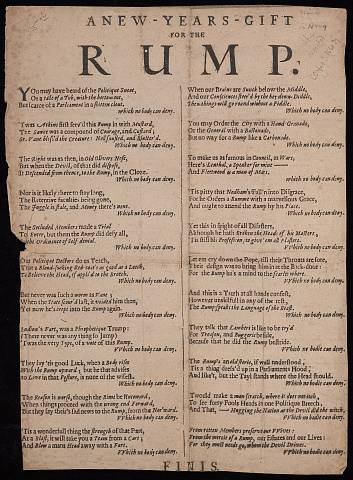 A NEW-YEARS-GIFT
FOR THE
RUMP.
You may have heard of the Politique Snout,
Or a tale of a Tub, with the bottom out,
But scarce of a Parliament in a clout,
Which no body can deny.
'Twas first serv'd this Rump in with Mustard,
The Sawce was a compound of Courage, and Custard;
Sr. Vane bless'd the Creature: Nol snuffled, and bluster'd.
Which no body can deny.
The Right was as then, in Old Olivers Nose,
But when the Devil, of that did dispose,
It descended from thence, to the Rump, in the Cloze.
Which no body can deny.
Nor is it likely there to stay long,
The Retentive faculties being gone,
The Juggle is stale, and Money there's none.
Which no body can deny.
The Secluded Members made a Trial
To Enter, but them the Rump did defy all,
By the Ordinance of Self denial.
Which no body can deny.
Our Politique Doctors do us Teach,
That a Blood-sucking Red-coat's as good as a Leech,
To Relieve the Head, if apply'd to the Breech.
Which no body can deny.
But never was such a Worm in Vane;
When the State scour'd it, it voided him then,
Yet now he's crept into the Rump again.
Which no body can deny.
Ludlow's Fart, was a Prophetique Trump:
(There never was any thing so Jump)
'Twas the very Type, of a vote of this Rump.
Which no body can deny.
They say 'tis good Luck, when a Body rises
With the Rump upward; but he that advises
To Live in that Posture, is none of the wisest.
Which no body can deny.
The Reason is worse, though the Rime be Untoward,
When things proceed with the wrong end Forward,
But they say there's sad news to the Rump, from the Nor'ward.
VVhich no body can deny.
'Tis a wonderfull thing the strength of that Part,
At a Blast, it will take you a Team from a Cart;
And Blow a mans Head away with a Fart.
VVhich no body can deny.
When our Brains are Sunck below the Middle,
And our Consciences steer'd by the hey down-Diddle,
Then things will go round without a Fiddle.
Which no body can deny.
You may Order the City with a Hand-Granado,
Or the General with a Bastonado,
But no way for a Rump like a Carbonado.
Which no body can deny.
To make us as famous in Council, as Wars,
Here's Lenthal, a Speaker for mine ——
And Fleetwood is a man of Mars.
Which no body can deny.
'Tis pitty that Nedham's Fall'n into Disgrace,
For he Orders a Rumme with a marvellous Grace,
And ought to attend the Rump by his Place.
Which no body can deny.
Yet this in spight of all Disasters,
Although he hath Broken the Heads of his Masters,
'Tis still his Profession, to give 'em all Plasters.
VVhich no body can deny.
Let em cry down the Pope, till their Throats are sore,
Their design was to bring him in at the Back-door:
For the Rump has a mind to the Scarlet whore.
Which no body can deny.
And this is a Truth at all hands confest,
However unskilfull in any of the rest,
The Rump speaks the Language of the Beast.
VVhich no body can deny.
They talk that Lambert is like to be try'd
For Treason, and Buggery beside,
Because that he did the Rump bestride.
VVhich no bodie can deny.
The Rump's an old Storie, if well understood,
'Tis a thing dress'd up in a Parliaments Hood;
And like't, but the Tayl stands where the Head should.
VVhich no bodie can deny.
T'would make a man scratch, where it does not itch,
To see forty Fools Heads in one Politique Breech,
And That, — Hugging the Nation as the Devil did the witch,
VVhich no bodie can deny.
From rotten Members preserve our VVives:
From the mercie of a Rump, our Estates and our Lives:
For they must needs go, whom the Devil Drives.
VVhich no bodie can deny.
FINIS.